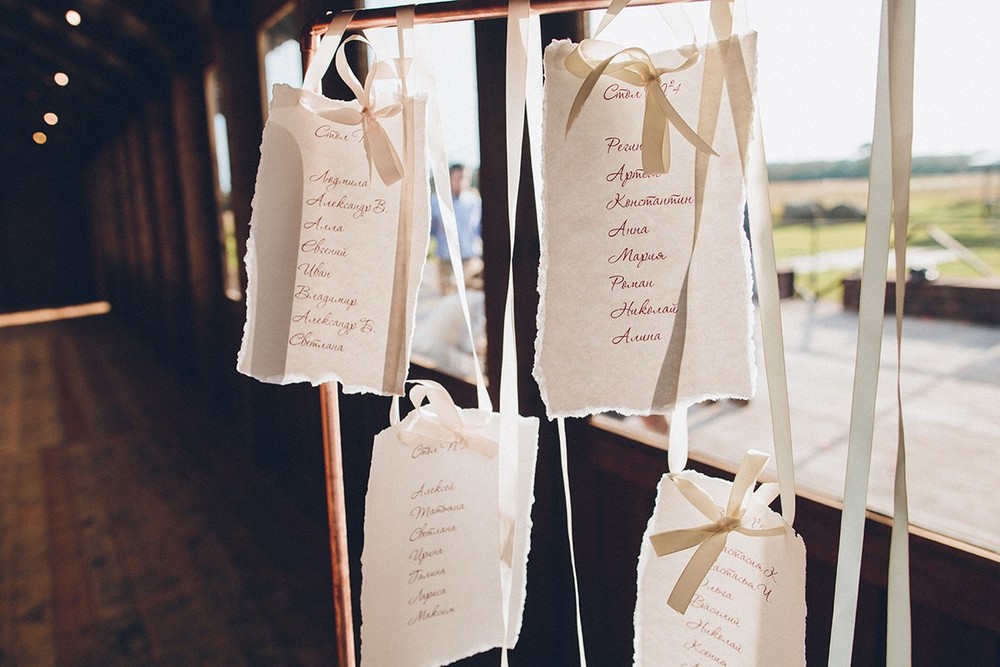 Стол
Людмила
Александр В.
Алла
Евгений
Иван
Владимир
Александр Б.
Светлана
Стол №4
Регин
Артём
Константин
Анна
Мария
Роман
Николай
Алина
Стол №
Алексей
Татьяна
Светлана
Ирина
Галина
Лариса
Максим
№
настасия К.
настасья И.
Ольга
Василий
Николай
Ксения